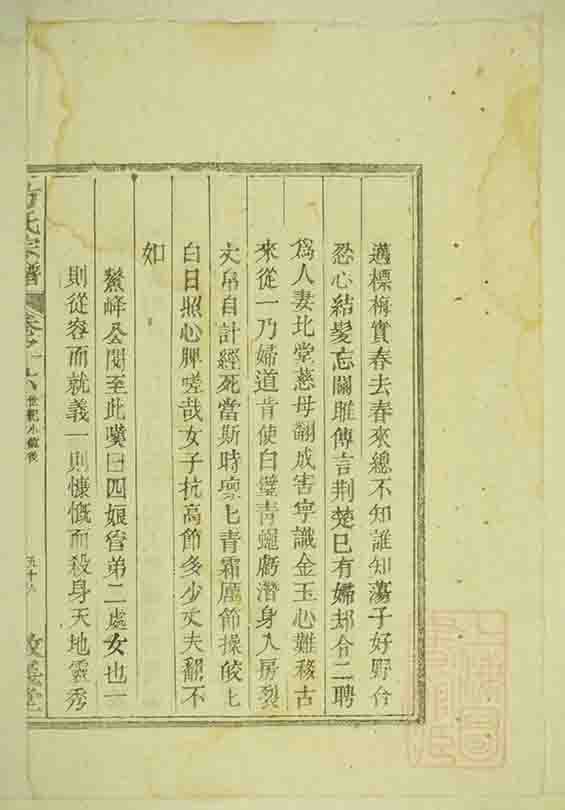 邁標梅實春去春來總不知誰知蕩子好野合
忍心結髮忘關雎傳言荆楚已有婦却令二聘
爲人妻北堂慈母翻成害寧識金玉心難移古
來從一乃婦道肯使白璧青蠅虧潛身入房裂
丈帛自計經死當斯時凜匕青霜厲節操皎匕
白日照心脾嗟哉女子抗高節多少丈夫翻不
如
鰲峰公閱至此嘆曰四娘管弟二處女也一
則從容而就義一則慷慨而殺身天地靈秀
氏宗譜 卷之 世範小傳後 五十 堂
上 圖